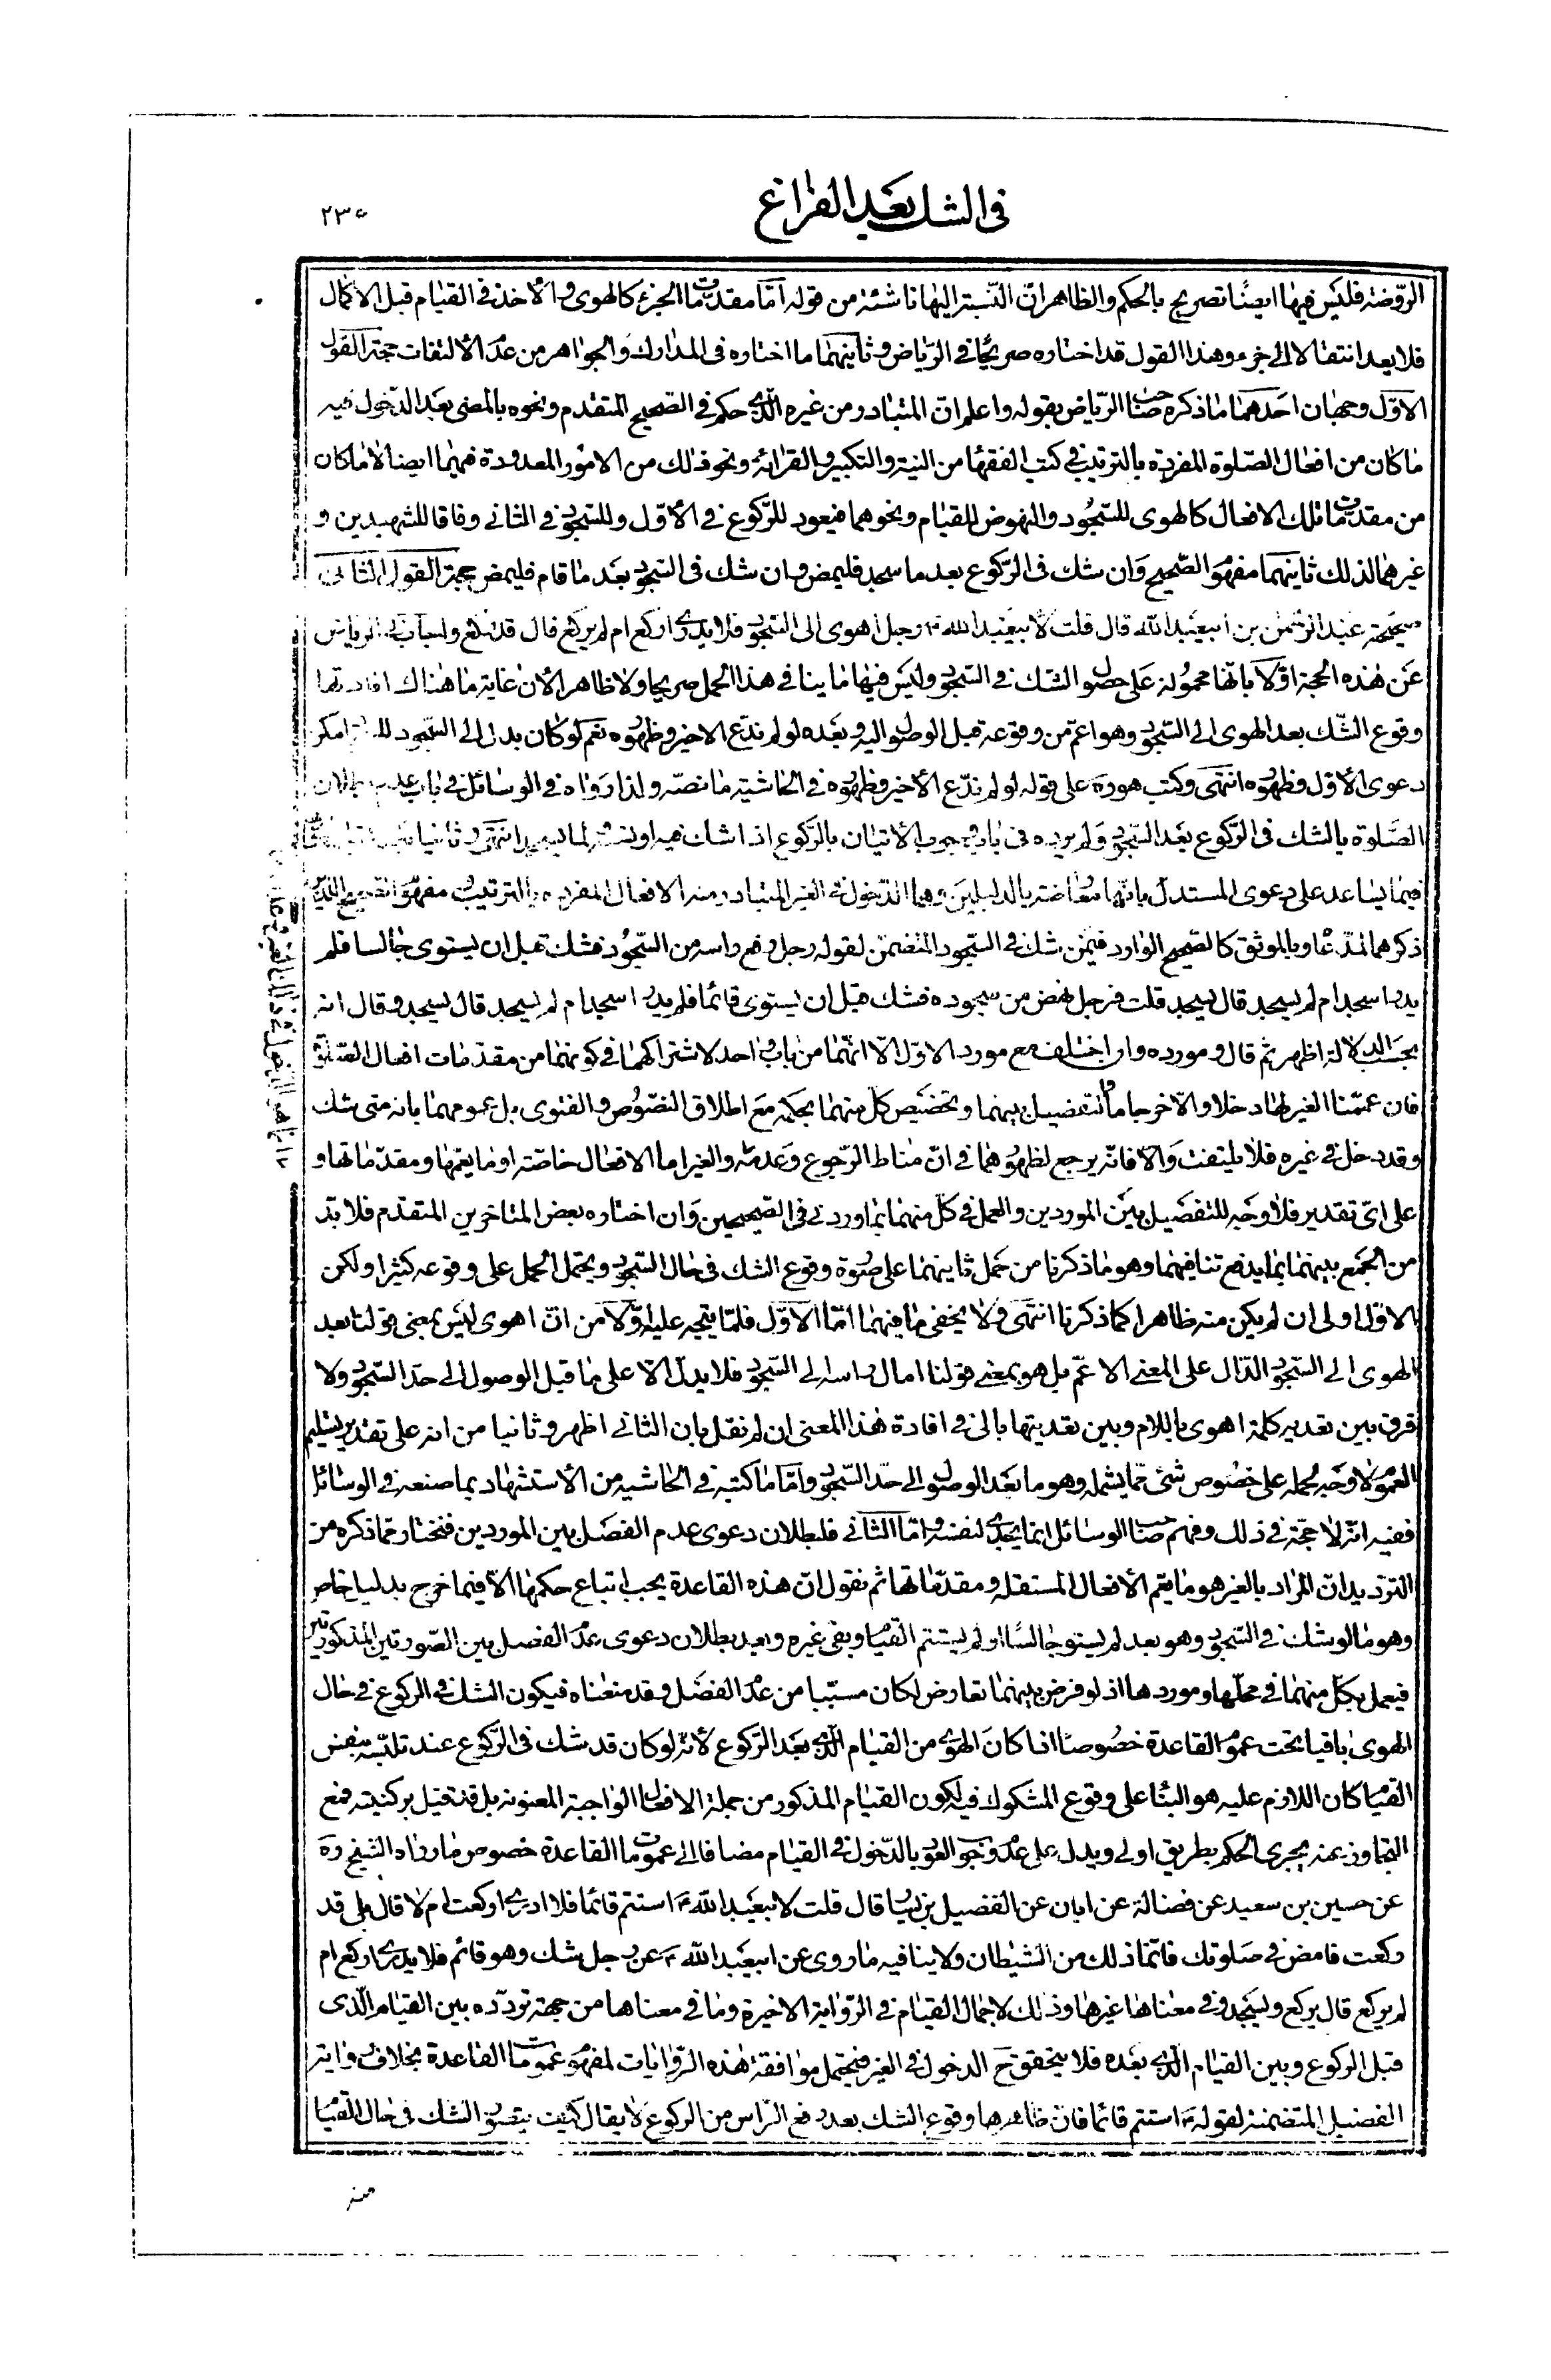 في الشك بعد الفراغ
٢٣٥
الرّوضة فليس فيها ايضًا تصريح بالحكم والظاهر انّ النّسبة اليها ناشئة من قوله امّا مقدّمات الجزء كالهوى والأخذ في القيام قبل الاكمال
فلا يعد انتقالا الى جزء وهذا القول قد اختاره صريحًا في الرّياض وثانيهما ما اختاره في المدارك والجواهر من عدم الألتفات حجة القول
الأوّل وجهان احدهما ما ذكره صاحب الرّياض بقوله واعلم انّ المتبادر من غيره الّذى حكم في الصّحيح المتقدم ونحوه بالمضى بعد الدّخول فيه
ما كان من افعال الصّلوة المفردة بالترتيب في كتب الفقهاء من النية والتكبير والقرائة ونحو ذلك من الامور المعدودة فيهما ايضا لا ما كان
من مقدمات تلك الافعال كالهوى للسّجود والنهوض للقيام ونحوهما فيعود للرّكوع في الأوّل وللسّجود في الثاني وفاقا للشهيدين و
غيرهما لذلك ثانيهما مفهوم الصّحيح وان شك في الرّكوع بعد ما سجد فليمض وان شك في السّجود بعد ما قام فليمض حجة القول الثانى
صحيحة عبد الرّحمن بن ابيعبد الله قال قلت لابيعبد الله ع رجل اهوى الى السّجود فلا يدرى اركع ام لم يركع قال قد ركع واجاب في الرياض
عن هذه الحجة اوّلا بانّها محمولة على حصول الشك في السّجود وليس فيها ما ينافي هذا الحمل صريحا ولا ظاهرا لأن غاية ما هناك افادتها
وقوع الشّك بعد الهوى الى السّجود وهو اعمّ من وقوعه قبل الوصول اليه وبعده لو لم ندّع الاخير وظهوره نعم لو كان بدل الى السّجود للسجود امكن
دعوى الأوّل وظهوره انتهى وكتب هو ره على قوله لو لم ندّع الأخير وظهوره في الحاشية ما نصّه ولذا رواه في الوسائل في باب عدم بطلان
الصّلوة بالشك في الرّكوع بعد السّجود ولم يرده في باب وجوب الأتيان بالرّكوع اذا شك فيه
فيما يساعد على دعوى المستدل بانّها معارضة بالدليلين وهما الدّخول في الغير المتبادر منه الافعال المفردة بالترتيب ومفهوم الصّحيح
ذكرهما المدّعا وبالموثق كالصّحيح الوارد فيمن شك في السّجود المتضمّن لقوله رجل رفع راسه من السّجود فشك قبل ان يستوى جالسا فلم
يدر اسجد ام لم يسجد قال يسجد قلت فرجل نهض من سجوده فشك قبل ان يستوى قائما فلم يدر اسجد ام لم يسجد قال يسجد وقال انه
بحسب الدلالة اظهر ثم قال ومورده وان اختلف مع مورد الاوّل الّا انّهما من باب واحد لاشتراكهما في كونهما من مقدّمات افعال الصّلوة
فان عمّمنا الغير لها دخلا والّا خرجا ما التفصيل بينهما وتخصيص كلّ منهما بحكمه مع اطلاق النصوص والفتوى بل عمومهما بانه متى شك
وقد دخل في غيره فلا يلتفت والّا فانّه يرجع لظهورهما في انّ مناط الرّجوع وعدمه والغير اما الافعال خاصّة او ما يعمّها ومقدّماتها و
على اىّ تقدير فلا وجه للتفصيل بين الموردين والعمل في كلّ منهما بما ورد في الصحيحين وان اختاره بعض المتاخرين المتقدّم فلا بدّ
من الجمع بينهما بما يدفع تنافيهما وهو ما ذكرنا من حمل ثانيهما على صورة وقوع الشك في حال السّجود ويحتمل الحمل على وقوعه كثيرا ولكن
الاوّل اولى ان لم يكن منه ظاهرا كما ذكرنا انتهى ولا يخفى ما فيهما امّا الأوّل فلما يتّجه عليه اوّلا من انّ اهوى ليس بمعنى قولنا بعد
الهوى الى السّجود الدّال على المعنى الاعمّ بل هو بمعنى قولنا امال راسه الى السّجود فلا يدلّ الّا على ما قبل الوصول الى حدّ السّجود ولا
فرق بين تعديه كلمة اهوى باللام وبين تعديتها بالى في افادة هذا المعنى ان لم نقل بان الثانى اظهر وثانيا من انه على تقدير تسليم
العموم لا وجه لحمله على خصوص شئ ممّا يشمله وهو ما بعد الوصول الى حدّ السّجود وامّا ما كتبه في الحاشيه من الأستشهاد بما صنعه في الوسائل
ففيه انّه لا حجّة في ذلك وفهم صاحب الوسائل انما يجدى لنفسه وامّا الثّانى فلبطلان دعوى عدم الفصل بين الموردين فنختار ممّا ذكره من
الترديد انّ المراد بالغير هو ما يعمّ الأفعال المستقلّه ومقدّماتها ثم نقول انّ هذه القاعدة يجب اتباع حكمها الّا فيما خرج بدليل خاص
وهو ما لو شك في السّجود وهو بعد لم يستو جالسًا او لم يستتم القيام وبقى غيره وبعد بطلان دعوى عدم الفصل بين الصّورتين المذكورتين
فيعمل بكلّ منهما في محلّها وموردها اذ لو فرض بينهما تعارض لكان مسبّبا من عدم الفصل وقد منعناه فيكون الشك في الركوع في حال
الهوى باقيا تحت عموم القاعدة خصوصا اذا كان الهوى من القيام الّذى بعد الرّكوع لأنّه لو كان قد شك في الرّكوع عند تلبّسه بنفس
القيام كان اللازم عليه هو البناء على وقوع المشكوك فيه لكون القيام المذكور من جملة الافعال الواجبة المعنونة بل قد قيل بركنيته فمع
التجاوز عنه يجرى الحكم بطريق اولى ويدل على عدم وجوب العود بالدّخول في القيام مضافا الى عمومات القاعدة خصوص ما رواه الشيخ ره
عن حسين بن سعيد عن فضالة عن ابان عن الفضيل بن يسار قال قلت لابيعبد الله ع استتم قائما فلا ادرى اركعت ام لا قال بلى قد
ركعت فامض في صلوتك فانّما ذلك من الشيطان ولا ينافيه ما روى عن ابيعبد الله ع عن رجل شك وهو قائم فلا يدرى اركع ام
لم يركع قال يركع ويسجد وفي معناها غيرها وذلك لاجمال القيام في الرّواية الاخيرة وما في معناها من جهة تردّده بين القيام الّذى
قبل الركوع وبين القيام الّذى بعده فلا يتحقق ح الدخول في الغير فيحتمل موافقة هذه الرّوايات لمفهوم عمومات القاعدة بخلاف رواية
الفضيل المتضمنة لقوله ع استتم قائما فانّ ظاهرها وقوع الشك بعد رفع الرّاس من الركوع لا يقال كيف يتصوّر الشك في حال القيام
منه